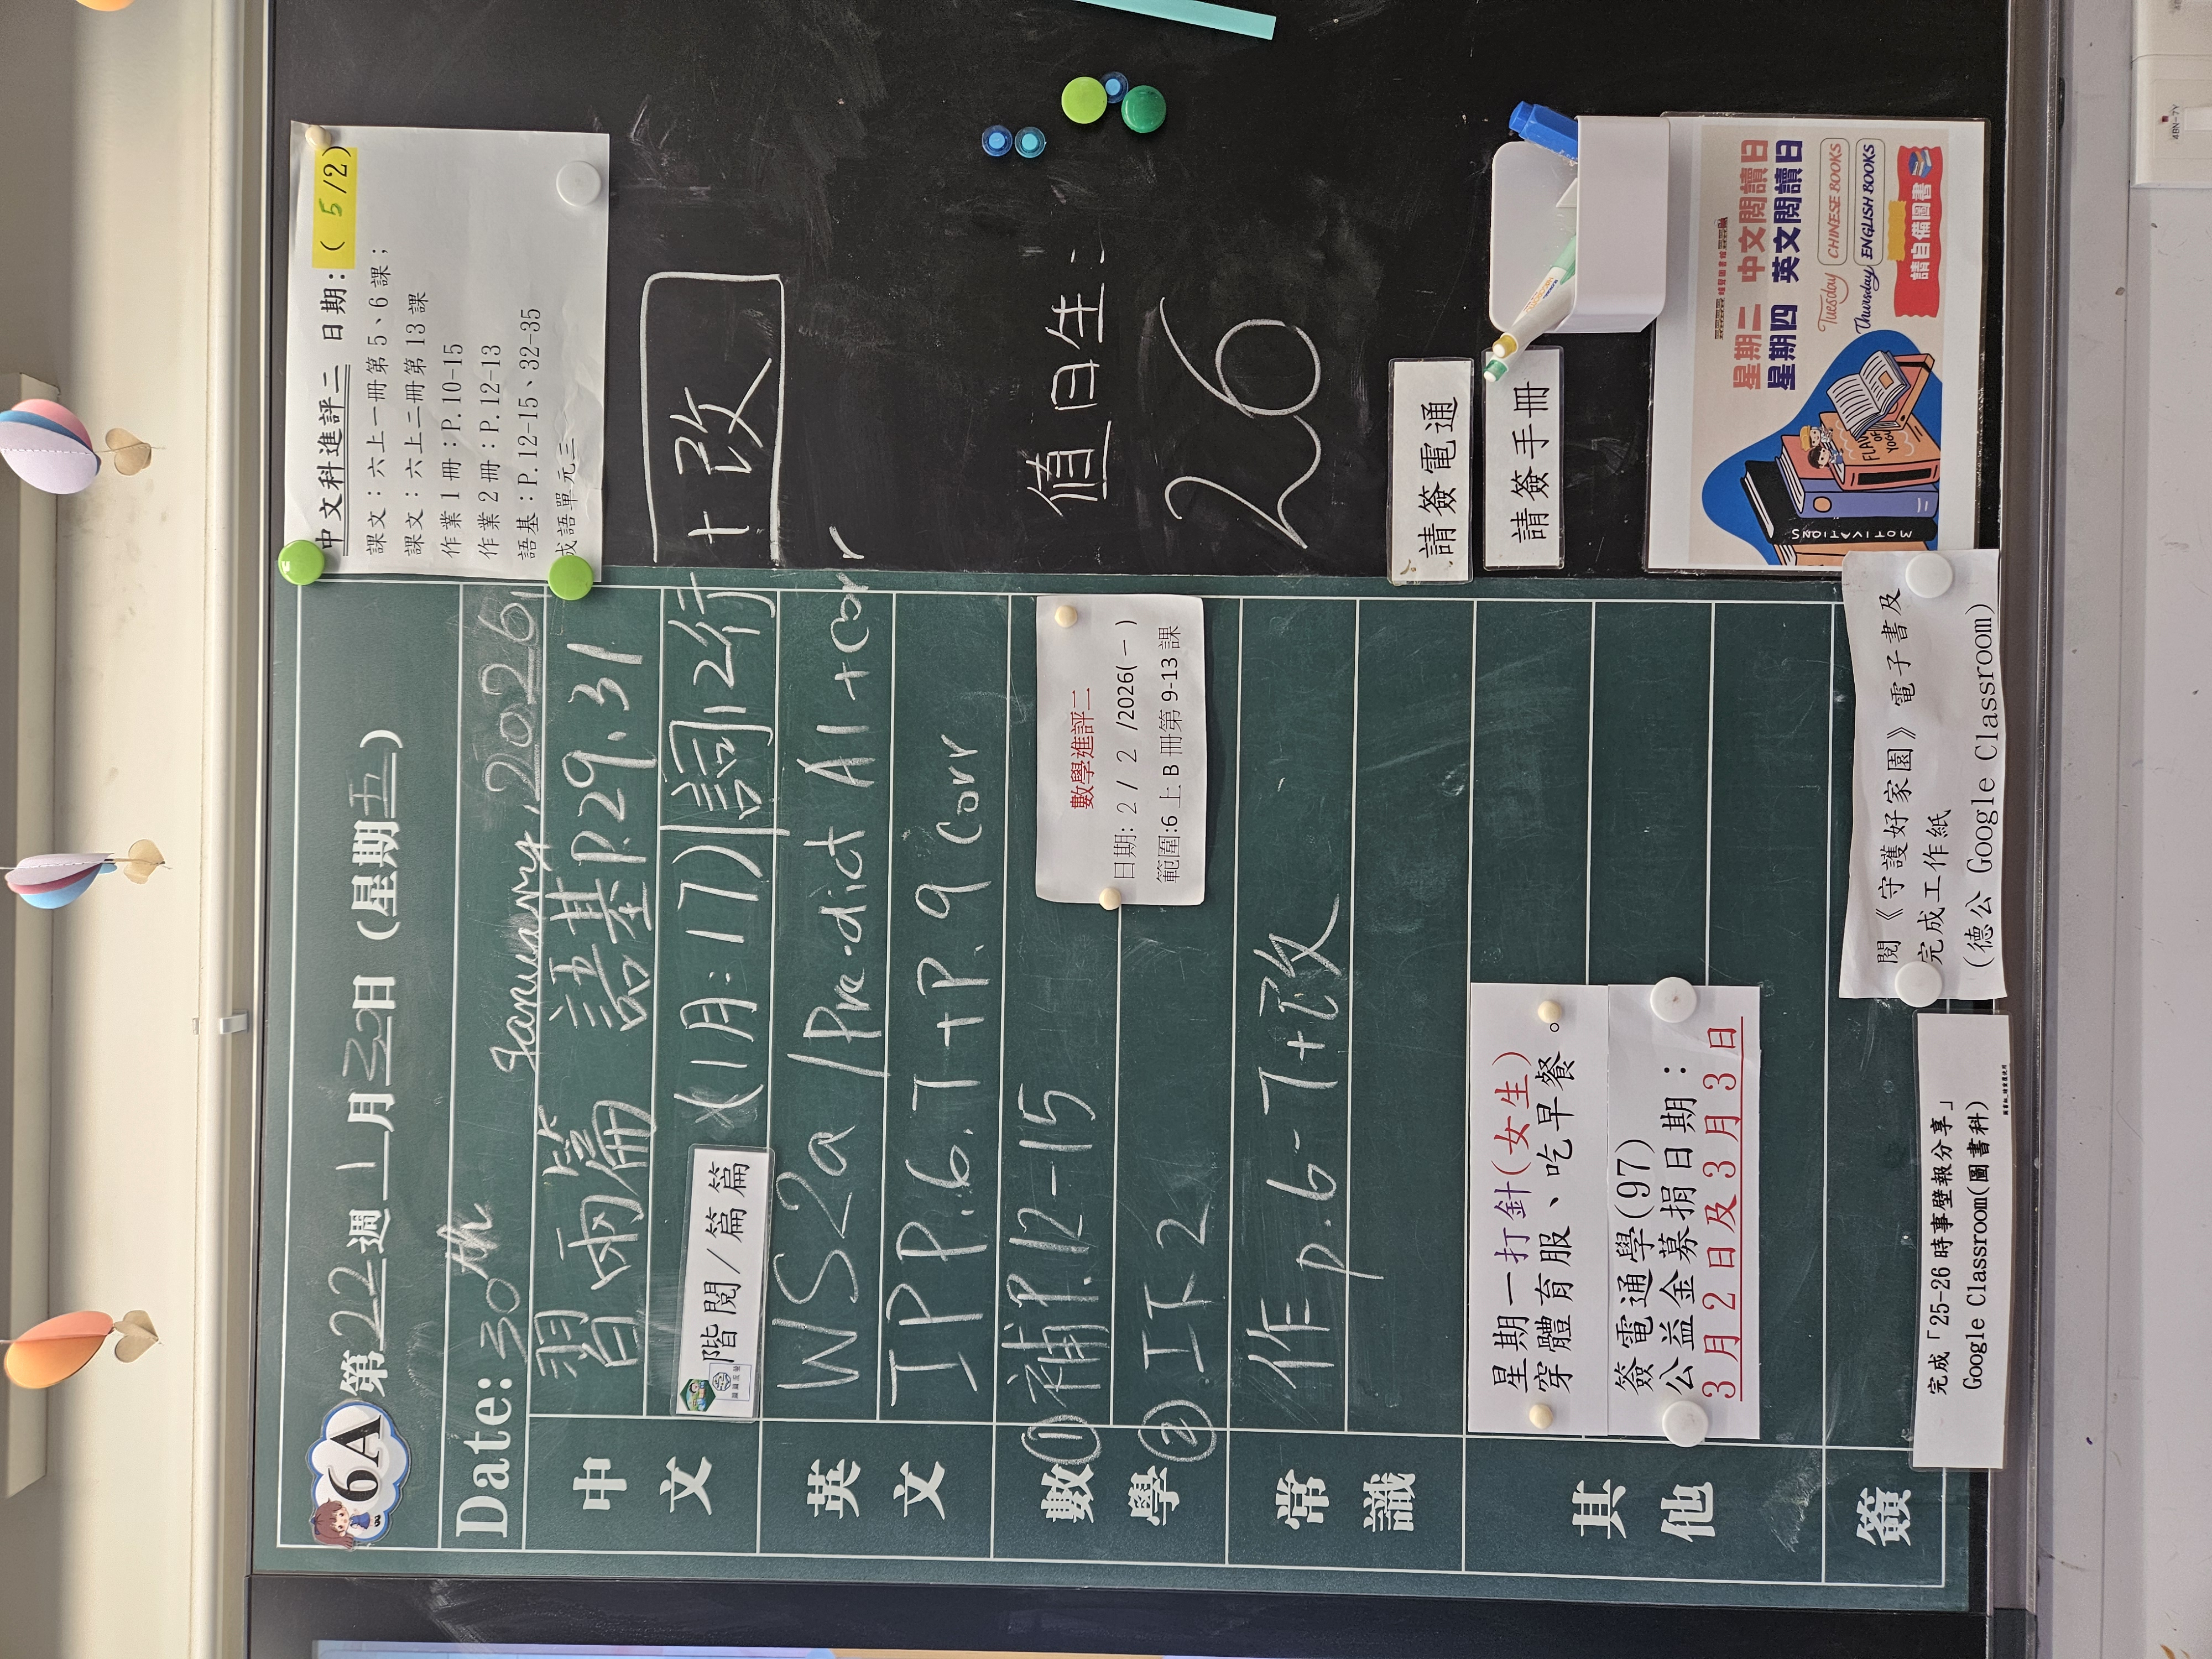 6A 第22週 1月30日(星期五)
Date: 30th January, 2026
中文
習兩篇 語基P.29.31
階閱/篇篇 (1月:17) 詞12行
+改
英文
WS2a / Predict A1 + Corr
IP P.6.7+P.9 Corr
數學
① 補P.12-15
② 工下2
數學進評二
日期: 2 / 2 /2026(一)
範圍:6上B冊第9-13課
常識
作 p.6-7+改
其他
星期一打針(女生)
穿體育服、吃早餐。
簽電通學(97)
公益金募捐日期:
3月2日及3月3日
簽
完成「25-26時事壁報分享」
Google Classroom(圖書科)
閱《守護好家園》電子書及
完成工作紙
(德公 Google Classroom)
中文科進評二 日期:( 5/2)
課文:六上一冊第5、6課;
課文:六上二冊第13課
作業1冊:P.10-15
作業2冊:P.12-13
語基:P.12-15、32-35
成語單元三
值日生:
26
請簽電通
請簽手冊
星期二 中文閱讀日
星期四 英文閱讀日
Tuesday CHINESE BOOKS
Thursday ENGLISH BOOKS
請自備圖書
MOTIVATIONS